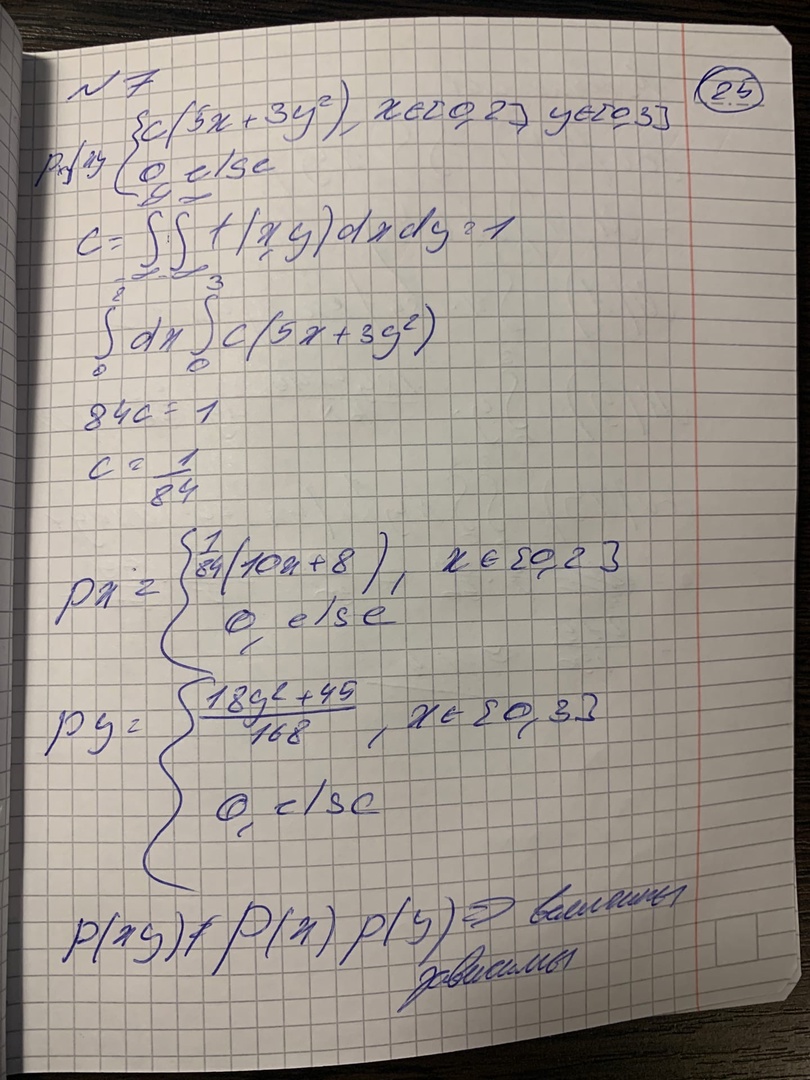 25
№7
p_xy(xy) {c(5x+3y²), x∈[0,2], y∈[0,3]
0, else
c = ∫∫ f(x,y)dxdy=1
∫₀² dx ∫₀³ c(5x+3y²)
84c = 1
c = 1/84
px = {1/84(10x+8), x∈[0,2]
0, else
py = {(18y²+45)/168, x∈[0,3]
0, else
p(xy)≠p(x)p(y) ⇒ величины
зависимы